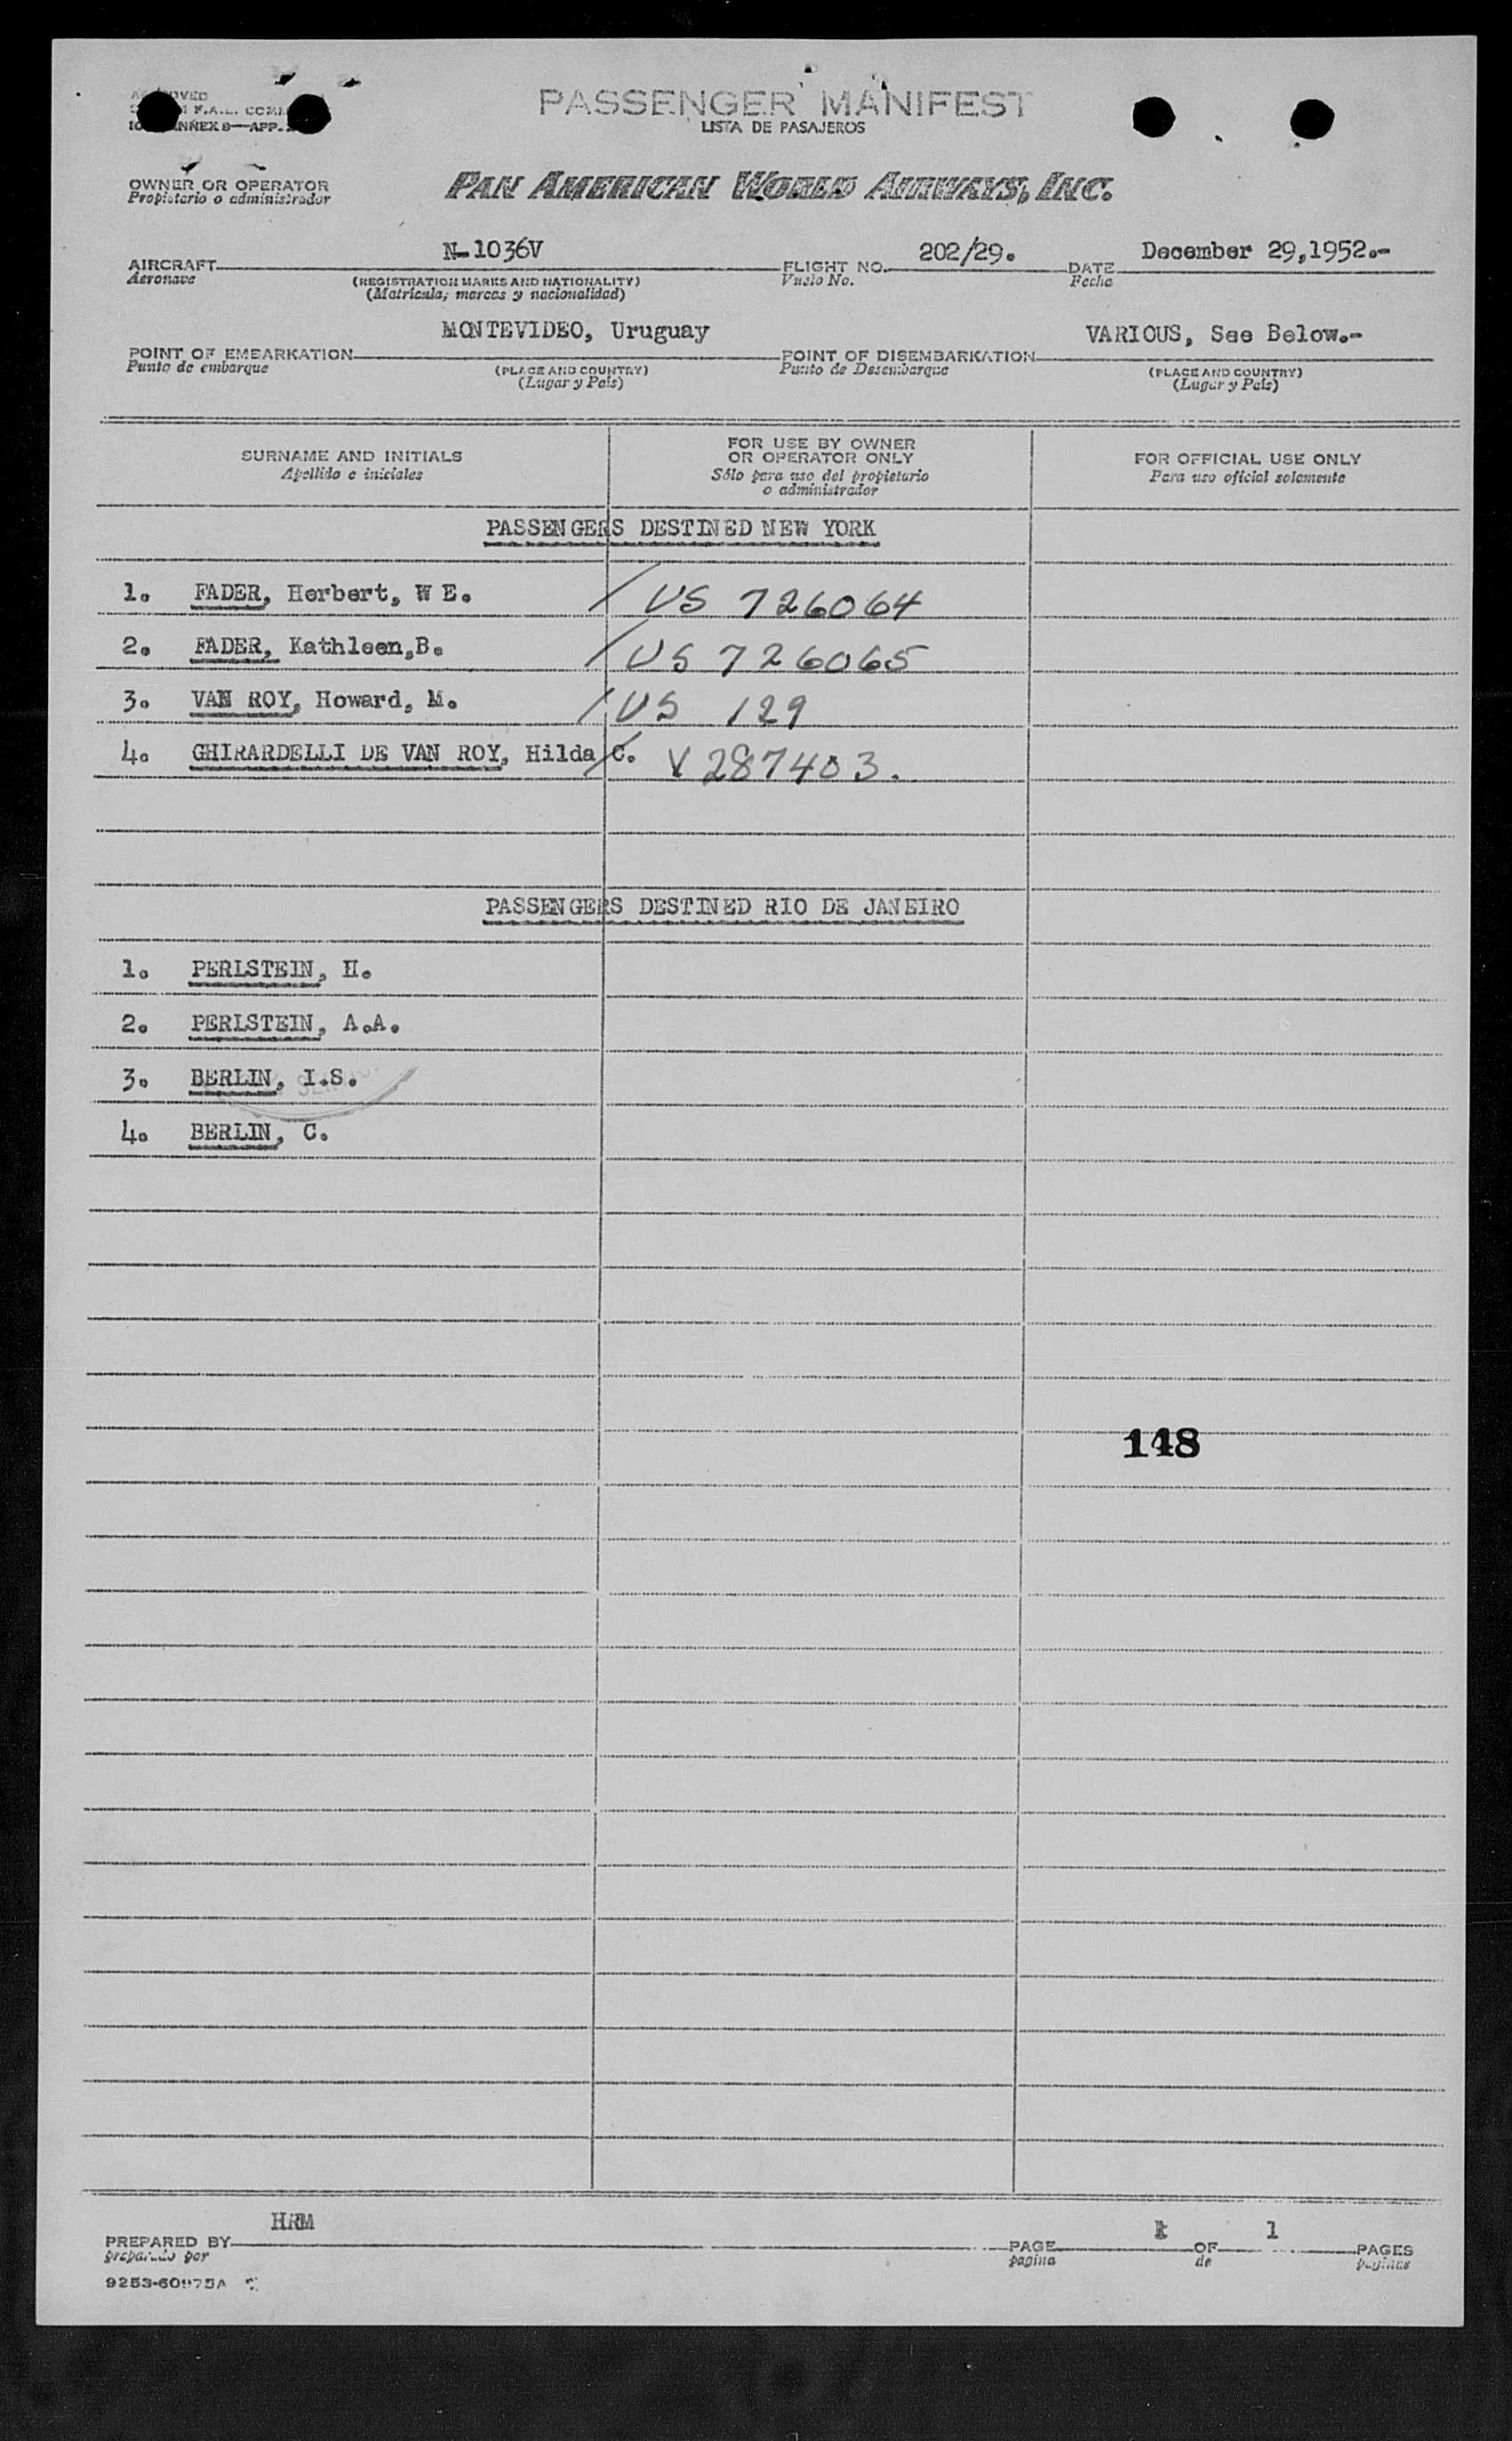 PASSENGER MANIFEST
LISTA DE PASAJEROS
F.A.L.
ANNEX 8—APP.
OWNER OR OPERATOR
Propietario o administrador
PAN AMERICAN WORLD AIRWAYS, INC.
AIRCRAFT N-1036V FLIGHT NO. 202/29. DATE December 29,1952.-
Aeronave (REGISTRATION MARKS AND NATIONALITY) Vuelo No. Fecha
(Matrícula, marcas y nacionalidad)
POINT OF EMBARKATION MONTEVIDEO, Uruguay POINT OF DISEMBARKATION VARIOUS, See Below.-
Punto de embarque (PLACE AND COUNTRY) Punto de Desembarque (PLACE AND COUNTRY)
(Lugar y País) (Lugar y País)
SURNAME AND INITIALS
Apellido e iniciales
FOR USE BY OWNER
OR OPERATOR ONLY
Sólo para uso del propietario
o administrador
FOR OFFICIAL USE ONLY
Para uso oficial solamente
PASSENGERS DESTINED NEW YORK
1. FADER, Herbert, W E. / US 726064
2. FADER, Kathleen,B. / US 726065
3. VAN ROY, Howard, M. / US 129
4. GHIRARDELLI DE VAN ROY, Hilda C. V 287403.
PASSENGERS DESTINED RIO DE JANEIRO
1. PERLSTEIN, H.
2. PERLSTEIN, A.A.
3. BERLIN, I.S.
4. BERLIN, C.
148
PREPARED BY HRM PAGE 1 OF 1 PAGES
preparado por pagina de paginas